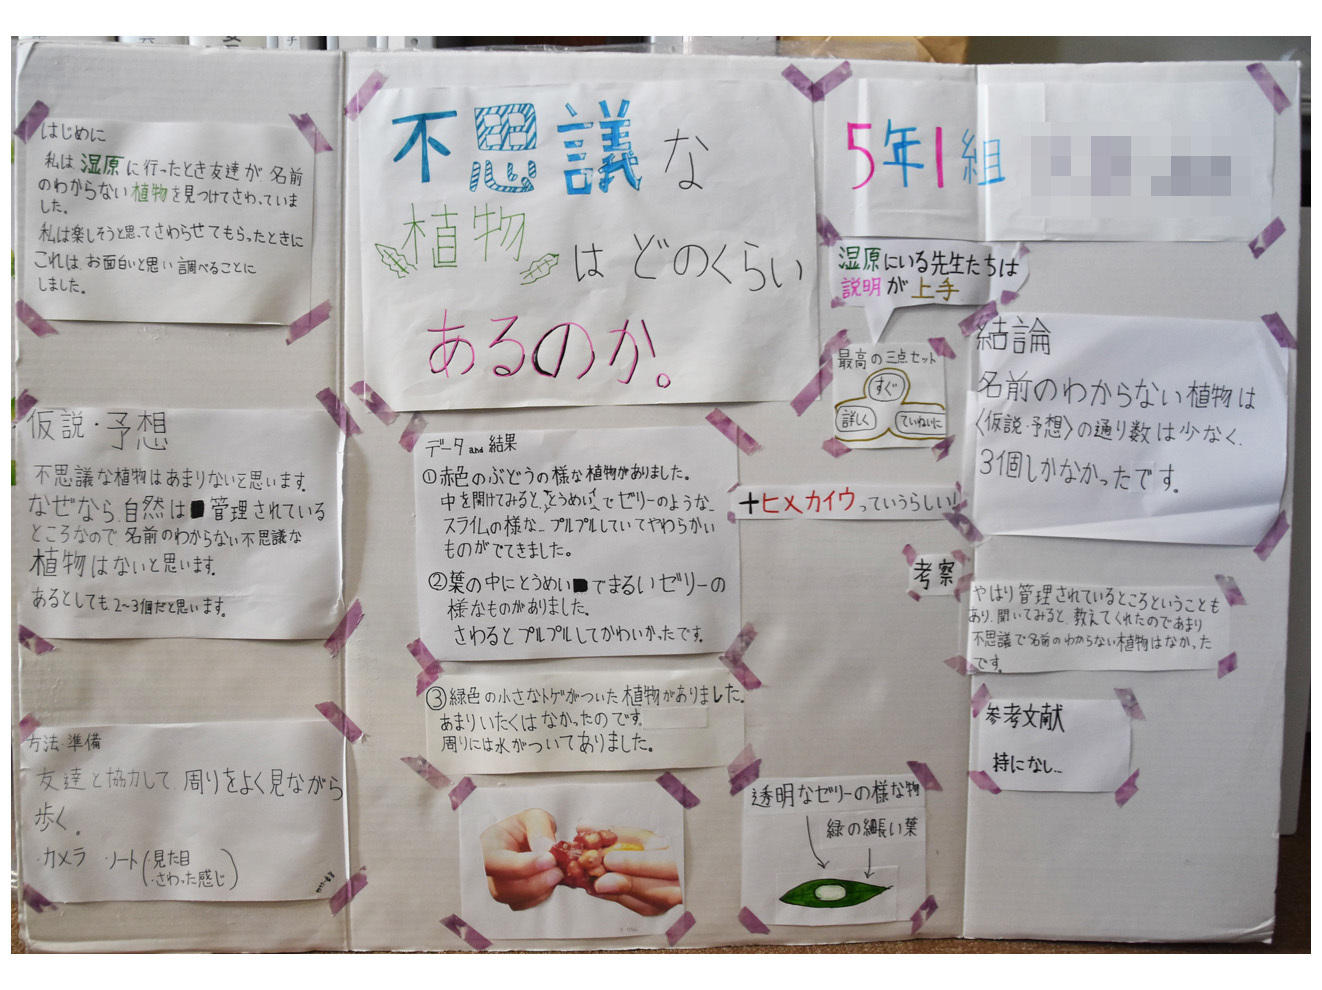 はじめに
私は湿原に行ったとき友達が名前
のわからない植物を見つけてさわっていま
した。
私は楽しそうと思ってさわらせてもらったときに
これは、お面白いと思い調べることに
しました。
仮説・予想
不思議な植物はあまりないと思います。
なぜなら、自然は管理されている
ところなので、名前のわからない不思議な
植物はないと思います。
あるとしても、2〜3個だと思います。
方法・準備
友達と協力して、周りをよく見ながら
歩く。
・カメラ ・ノート(・見た目
・さわった感じ)
不思議な
植物はどのくらい
あるのか。
5年1組
データand結果
①赤色のぶどうの様な植物がありました。
中を開けてみると、とうめいでゼリーのような、
スライムの様な、プルプルしていてやわらかい
ものがでてきました。
②葉の中にとうめいでまるいゼリーの
様なものがありました。
さわるとプルプルしてかわいかったです。
③緑色の小さなトゲがついた植物がありました。
あまりいたくはなかったのです。
周りには水がついてありました。
湿原にいる先生たちは
説明が上手
最高の三点セット
すぐ
詳しく
ていねいに
+ヒメカイウっていうらしい!
透明なゼリーの様な物
緑の細長い葉
結論
名前のわからない植物は
〈仮説・予想〉の通り数は少なく、
3個しかなかったです。
考察
やはり管理されているところということも
あり、聞いてみると、教えてくれたのであまり
不思議で名前のわからない植物はなかった
です。
参考文献
持になし…